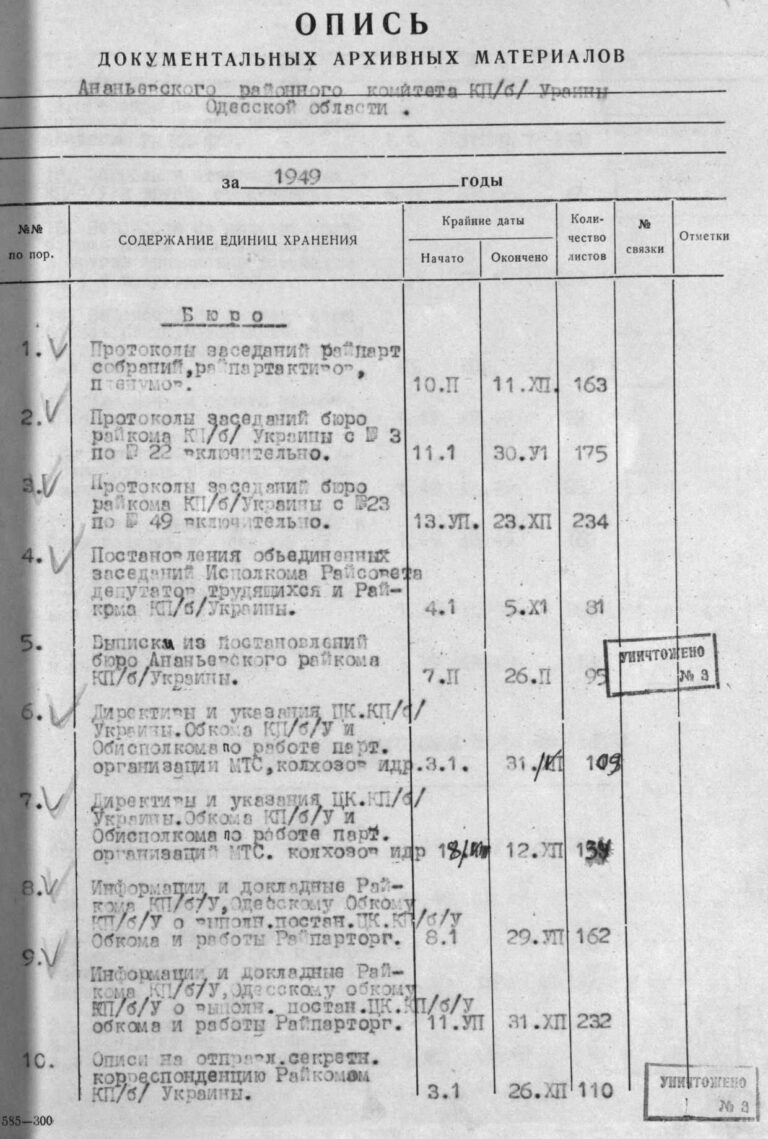 ОПИСЬ
ДОКУМЕНТАЛЬНЫХ АРХИВНЫХ МАТЕРИАЛОВ
Ананьевского районного комитета КП/б/ Ураины
Одесской области .
за 1949 годы
№№ по пор.
СОДЕРЖАНИЕ ЕДИНИЦ ХРАНЕНИЯ
Крайние даты
Начато
Окончено
Коли-
чество
листов
№
связки
Отметки
Бюро
1. Протоколы заседаний райпарт
собраний,райпартактивов,
пленумов. 10.П 11.ХП. 163
2. Протоколы заседаний бюро
райкома КП/б/ Украины с № 3
по № 22 включительно. 11.1 30.У1 175
3. Протоколы заседаний бюро
райкома КП/б/Украины с №23
по № 49 включительно. 13.УП. 23.ХП 234
4. Постановления обьединенных
заседаний Исполкома Райсовета
депутатов трудящихся и Рай-
кома КП/б/Украины. 4.1 5.Х1 81
5. Выписки из постановлений
бюро Ананьевского райкома
КП/б/Украины. 7.П 26.П 95
УНИЧТОЖЕНО
№ 3
6. Директивы и указания ЦК.КП/б/
Украины.Обкома КП/б/У и
Обисполкома по работе парт.
организации МТС,колхозов идр. 3.1. 31. 109
7. Директивы и указания ЦК.КП/б/
Украины.Обкома КП/б/У и
Обисполкома по работе парт.
организаций МТС. колхозов идр 12.ХП
8. Информации и докладные Рай-
кома КП/б/У,Одесскому Обкому
КП/б/У о выполн.постан.ЦК.КП/б/У
Обкома и работы Райпарторг. 8.1 29.УП 162
9. Информации и докладные Рай-
кома КП/б/У,Одесскому обкому
КП/б/У о выполн. постан.ЦК.КП/б/У
обкома и работы Райпарторг. 11.УП 31.ХП 232
10. Описи на отправл.секретн.
корреспонденцию Райкомом
КП/б/ Украины. 3.1 26.ХП 110
УНИЧТОЖЕНО
№ 3
585—300